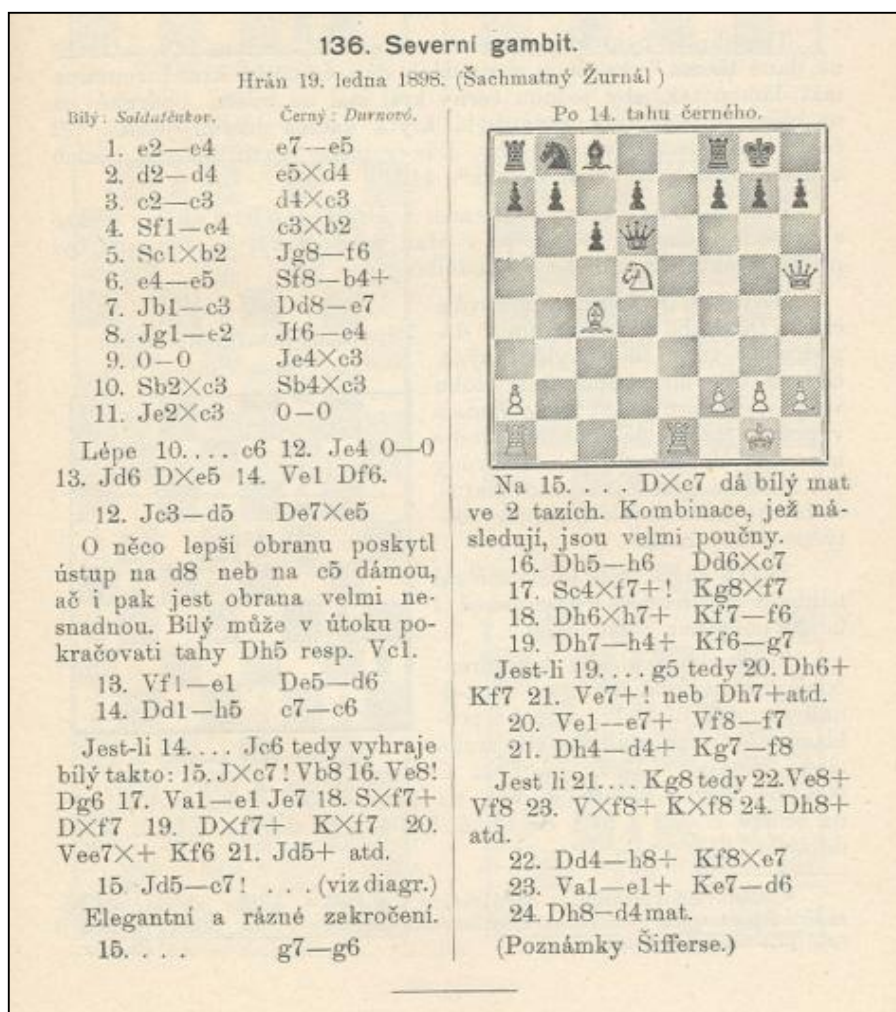 136. Severní gambit.
Hrán 19. ledna 1898. (Šachmatný Žurnál )
Bílý: Soldatěnkov. Černý: Durnovó.
1. e2—e4 e7—e5
2. d2—d4 e5×d4
3. c2—c3 d4×c3
4. Sf1—c4 c3×b2
5. Sc1×b2 Jg8—f6
6. e4—e5 Sf8—b4+
7. Jb1—c3 Dd8—e7
8. Jg1—e2 Jf6—e4
9. 0—0 Je4×c3
10. Sb2×c3 Sb4×c3
11. Je2×c3 0—0
Lépe 10.... c6 12. Je4 0—0
13. Jd6 D×e5 14. Ve1 Df6.
12. Jc3—d5 De7×e5
O něco lepší obranu poskytl
ústup na d8 neb na c5 dámou,
ač i pak jest obrana velmi ne-
snadnou. Bílý může v útoku po-
kračovati tahy Dh5 resp. Vc1.
13. Vf1—e1 De5—d6
14. Dd1—h5 c7—c6
Jest-li 14.... Jc6 tedy vyhraje
bílý takto: 15. J×c7! Vb8 16. Ve8!
Dg6 17. Va1—e1 Je7 18. S×f7+
D×f7 19. D×f7+ K×f7 20.
Vee7×+ Kf6 21. Jd5+ atd.
15. Jd5—c7! . . . (viz diagr.)
Elegantní a rázné zakročení.
15. . . . g7—g6
Po 14. tahu černého.
Na 15. . . . D×c7 dá bílý mat
ve 2 tazích. Kombinace, jež ná-
sledují, jsou velmi poučny.
16. Dh5—h6 Dd6×c7
17. Sc4×f7+! Kg8×f7
18. Dh6×h7+ Kf7—f6
19. Dh7—h4+ Kf6—g7
Jest-li 19.... g5 tedy 20. Dh6+
Kf7 21. Ve7+! neb Dh7+atd.
20. Ve1—e7+ Vf8—f7
21. Dh4—d4+ Kg7—f8
Jest li 21.... Kg8 tedy 22.Ve8+
Vf8 23. V×f8+ K×f8 24. Dh8+
atd.
22. Dd4—h8+ Kf8×e7
23. Va1—e1+ Ke7—d6
24. Dh8—d4 mat.
(Poznámky Šifferse.)